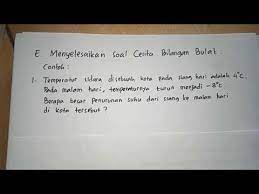 E. Menyelesaikan Soal Cerita Bilangan Bulat :
Contoh :
1. Temperatur udara disebuah kota pada siang hari adalah 4°C.
Pada malam hari, temperaturnya turun menjadi -3°C
Berapa besar penurunan suhu dari siang ke malam hari
di kota tersebut ?